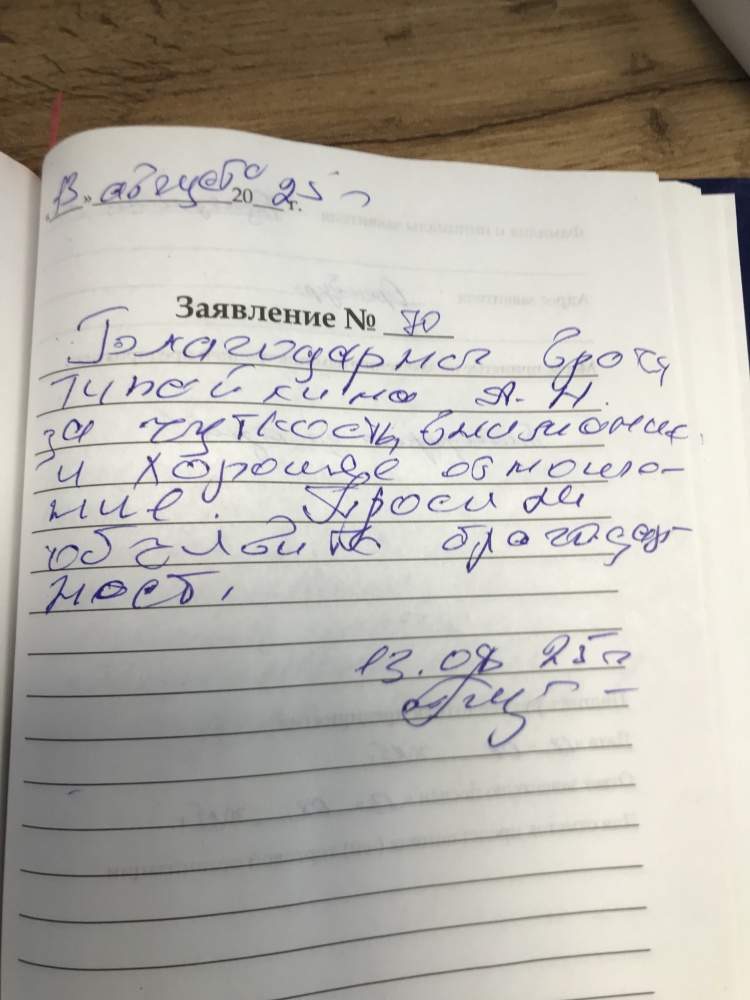 «13» августа 2025 г.
Заявление № 70
Благодарны врачу
А. Н.
за чуткость, внимание,
и хорошее отноше-
ние. Просим
объявить благодар-
ность.
13.08 25г